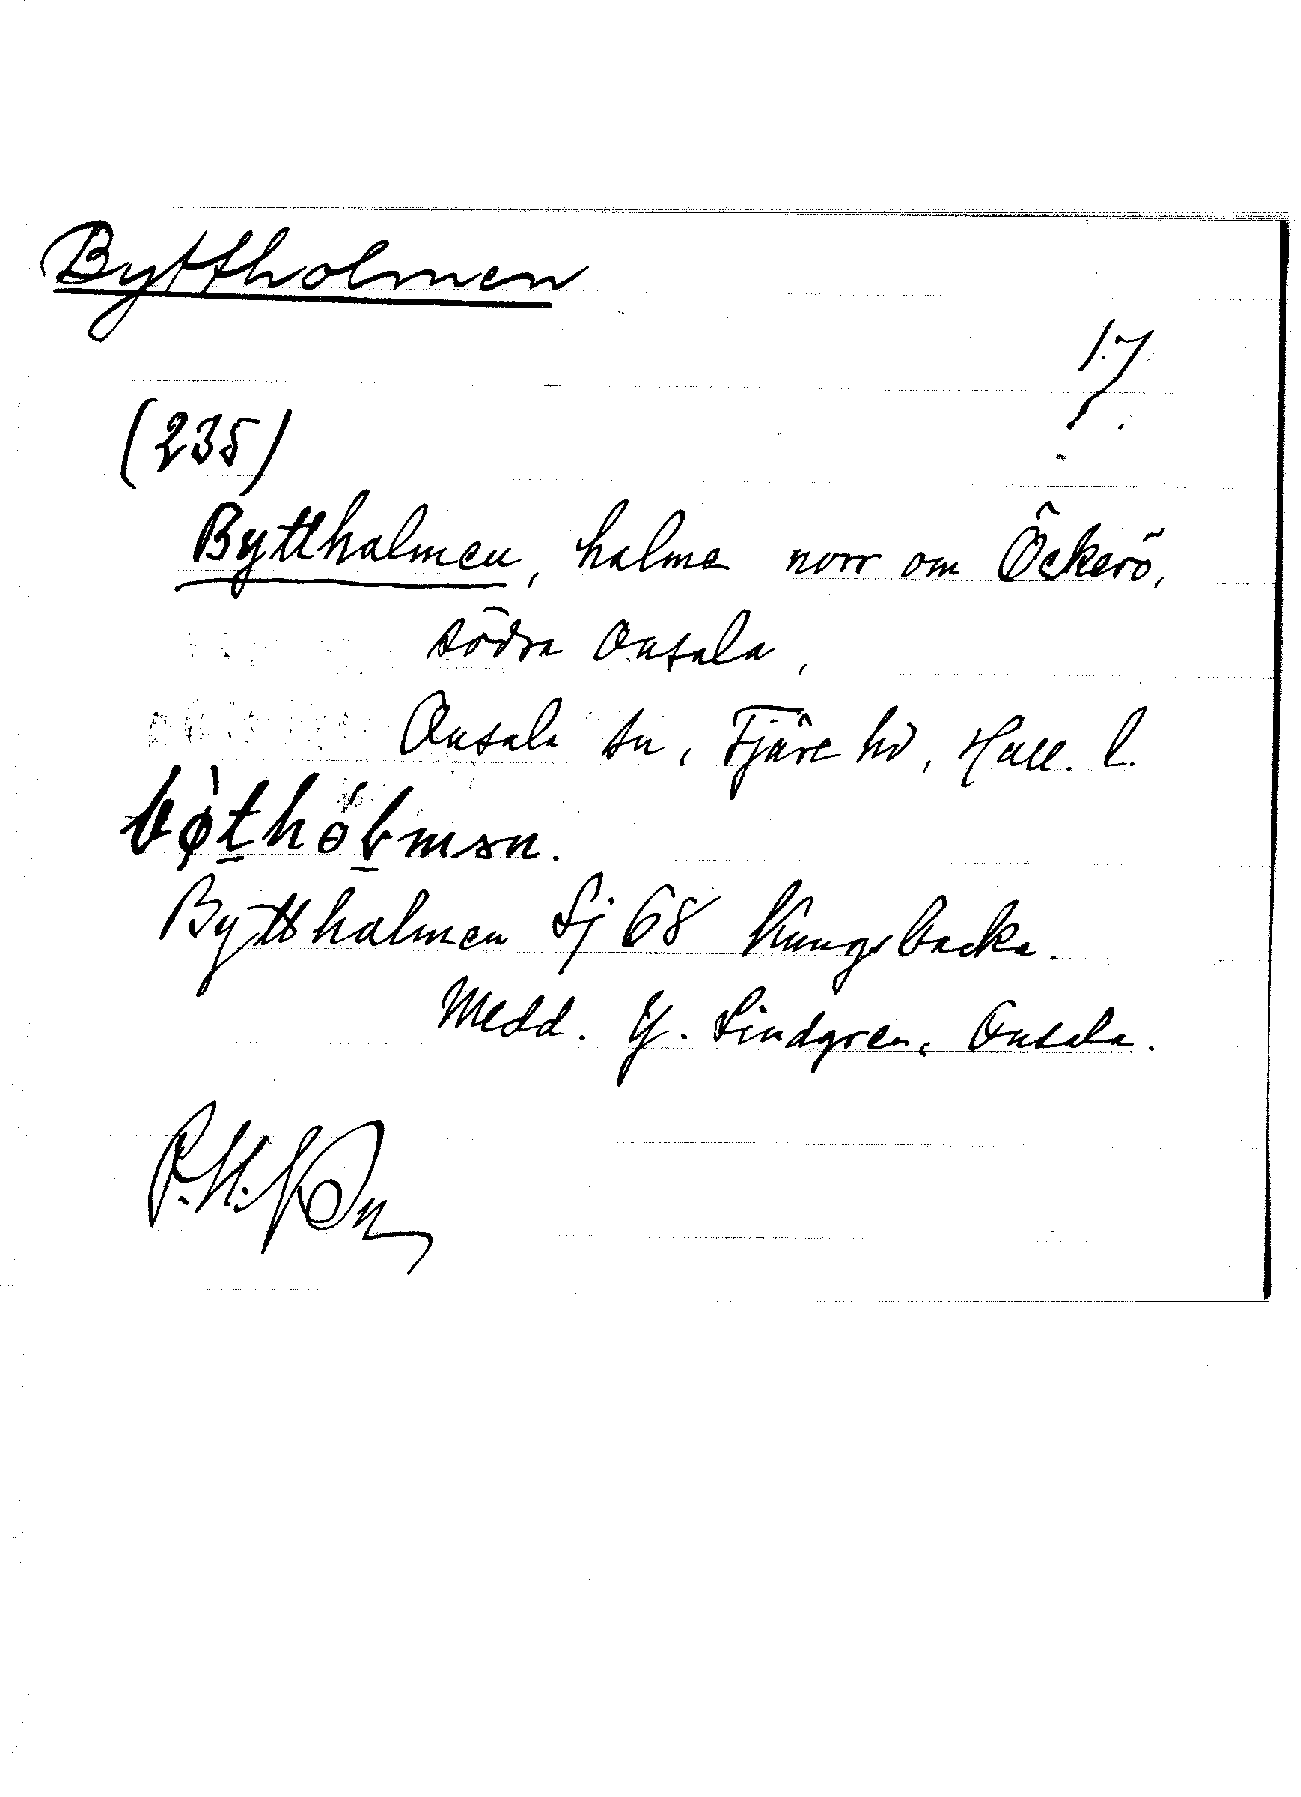 Byttholmen
17
(235)
Byttholmen, holme norr om Öckerö,
södra Onsala,
Onsala sn, Fjäre hd, Hall. l.
Byttholmen Sj 68 Kungsbacka.
Medd. Y. Lindgren, Onsala.